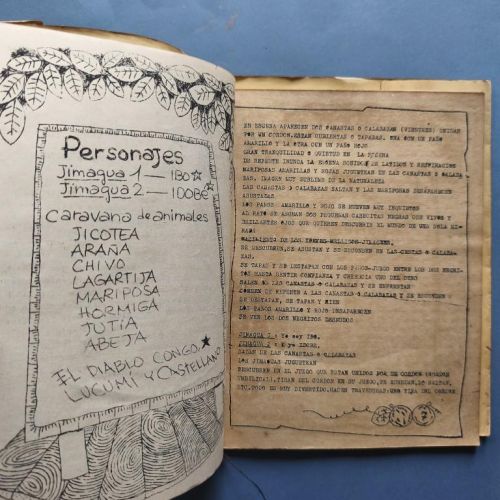 Personajes
Jimagua 1 — IBO
Jimagua 2 — IDOBE
Caravana de animales
JICOTEA
ARAÑA
CHIVO
LAGARTIJA
MARIPOSA
HORMIGA
JUTÍA
ABEJA
EL DIABLO CONGO,
LUCUMÍ Y CASTELLANO
EN ESCENA APARECEN DOS CANASTAS O CALABAZAS (VIENTRES) UNIDAS
POR UN CORDON. ESTAN CUBIERTAS O TAPADAS. UNA CON UN PAÑO
AMARILLO Y LA OTRA CON UN PAÑO ROJO
GRAN TRANQUILIDAD O QUIETUD EN LA
DE REPENTE INUNDA LA ESCENA SONIDOS DE LATIDOS Y RESPIRACION
MARIPOSAS AMARILLAS Y ROJAS JUGUETEAN EN LAS CANASTAS O CALABA-
ZAS, IMAGEN MUY SUBLIME DE LA NATURALEZA
LAS CANASTAS O CALABAZAS SALTAN Y LAS MARIPOSAS DESAPARECEN
ASUSTADAS
LOS PAÑOS AMARILLO Y ROJO SE MUEVEN MUY INQUIETOS
AL RATO SE ASOMAN DOS PEQUEÑAS CABECITAS NEGRAS CON VIVOS Y
BRILLANTES OJOS QUE QUIEREN DESCUBRIR EL MUNDO DE UNA SOLA MI-
RADA
NACIMIENTO DE LOS
SE DESCUBREN, SE ASUSTAN Y SE ESCONDEN EN LAS CESTAS O CALABA-
ZAS,
SE TAPAN Y SE DESTAPAN CON LOS PAÑOS-JUEGO ENTRE LOS DOS NEGRI-
TOS HASTA SENTIR CONFIANZA Y CERTEZA UNO DEL OTRO
SALEN DE LAS CANASTAS O CALABAZAS Y SE ENFRENTAN
CORREN DE REPENTE A LAS CANASTAS O CALABAZAS Y SE ESCONDEN
SE DESTAPAN, SE TAPAN Y RIEN
LOS PAÑOS AMARILLO Y ROJO DESAPARECEN
SE VEN LOS DOS NEGRITOS DESNUDOS
JIMAGUA 1: Yo soy IBO,
JIMAGUA 2: Y yo IDOBE,
SALEN DE LAS CANASTAS O CALABAZAS
LOS JIMAGUAS JUGUETEAN
DESCUBREN EN EL JUEGO QUE ESTAN UNIDOS POR UN CORDON (CORDON
UMBILICAL). TIRAN DEL CORDON EN SU JUEGO, SE ENREDAN, LO SALTAN,
ETC. TODO ES MUY DIVERTIDO. HACEN TRAVESURAS: UNO TIRA DEL CORDON
7